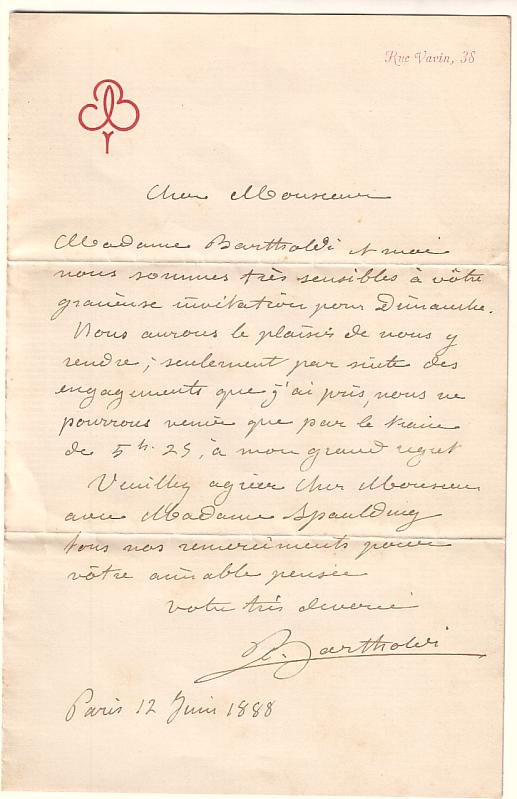 Rue Vavin, 38
Cher Monsieur
Madame Bartholdi et moi
nous sommes très sensibles à vôtre
gracieuse invitation pour Dimanche.
Nous aurons le plaisir de nous y
rendre; seulement par suite des
engagements que j'ai pris, nous ne
pourrons venir que par le train
de 5h. 25, à mon grand regret
Veuillez agréer Cher Monsieur
avec Madame Spaulding
tous nos remerciments pour
vôtre aimable pensée
votre très dévoué
Bartholdi
Paris 12 Juin 1888